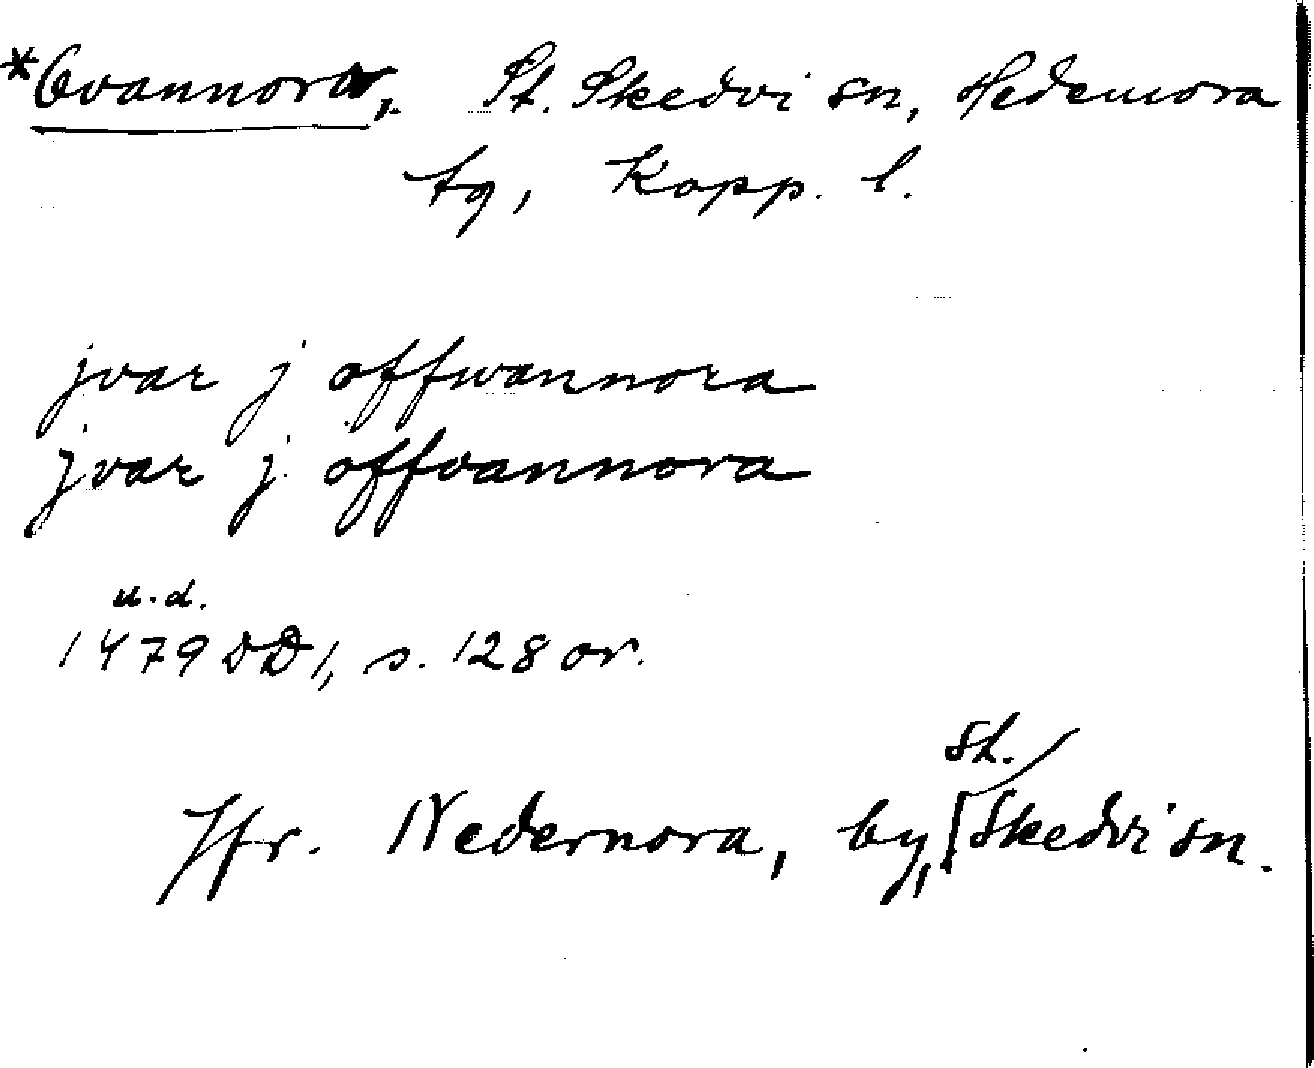 *Ovannora, St. Skedvi sn, Hedemora
tg, Kopp. l.
jvar j offwannora
jvar j offvannora
u.d.
1479 DD 1, s. 128 or.
Jfr. Nedernora, by, St. Skedvi sn.